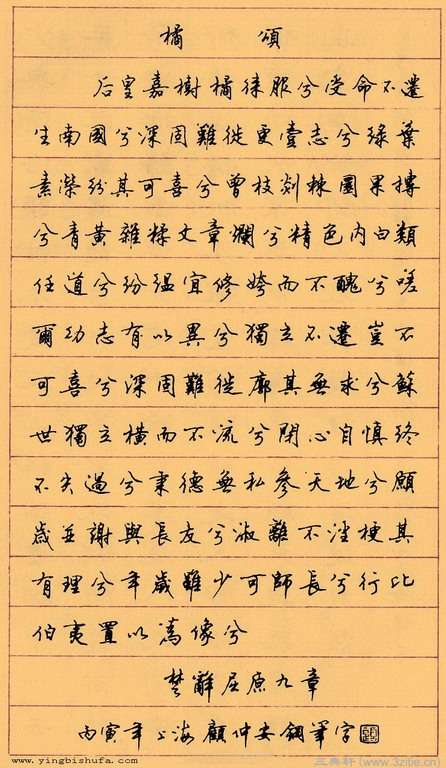 橘頌
后皇嘉樹橘徕服兮受命不遷
生南國兮深固難徙更壹志兮綠葉
素榮紛其可喜兮曾枝剡棘圜果摶
兮青黃雜糅文章爛兮精色內白類
任道兮紛縕宜修姱而不醜兮嗟
爾幼志有以異兮獨立不遷豈不
可喜兮深固難徙廓其無求兮蘇
世獨立橫而不流兮閉心自慎終
不失過兮秉德無私參天地兮願
歲並謝與長友兮淑離不淫梗其
有理兮年歲雖少可師長兮行比
伯夷置以為像兮
楚辭屈原九章
丙寅年上海顧仲安鋼筆字
www.yingbishufa.com
三典軒(www.3zitie.cn)